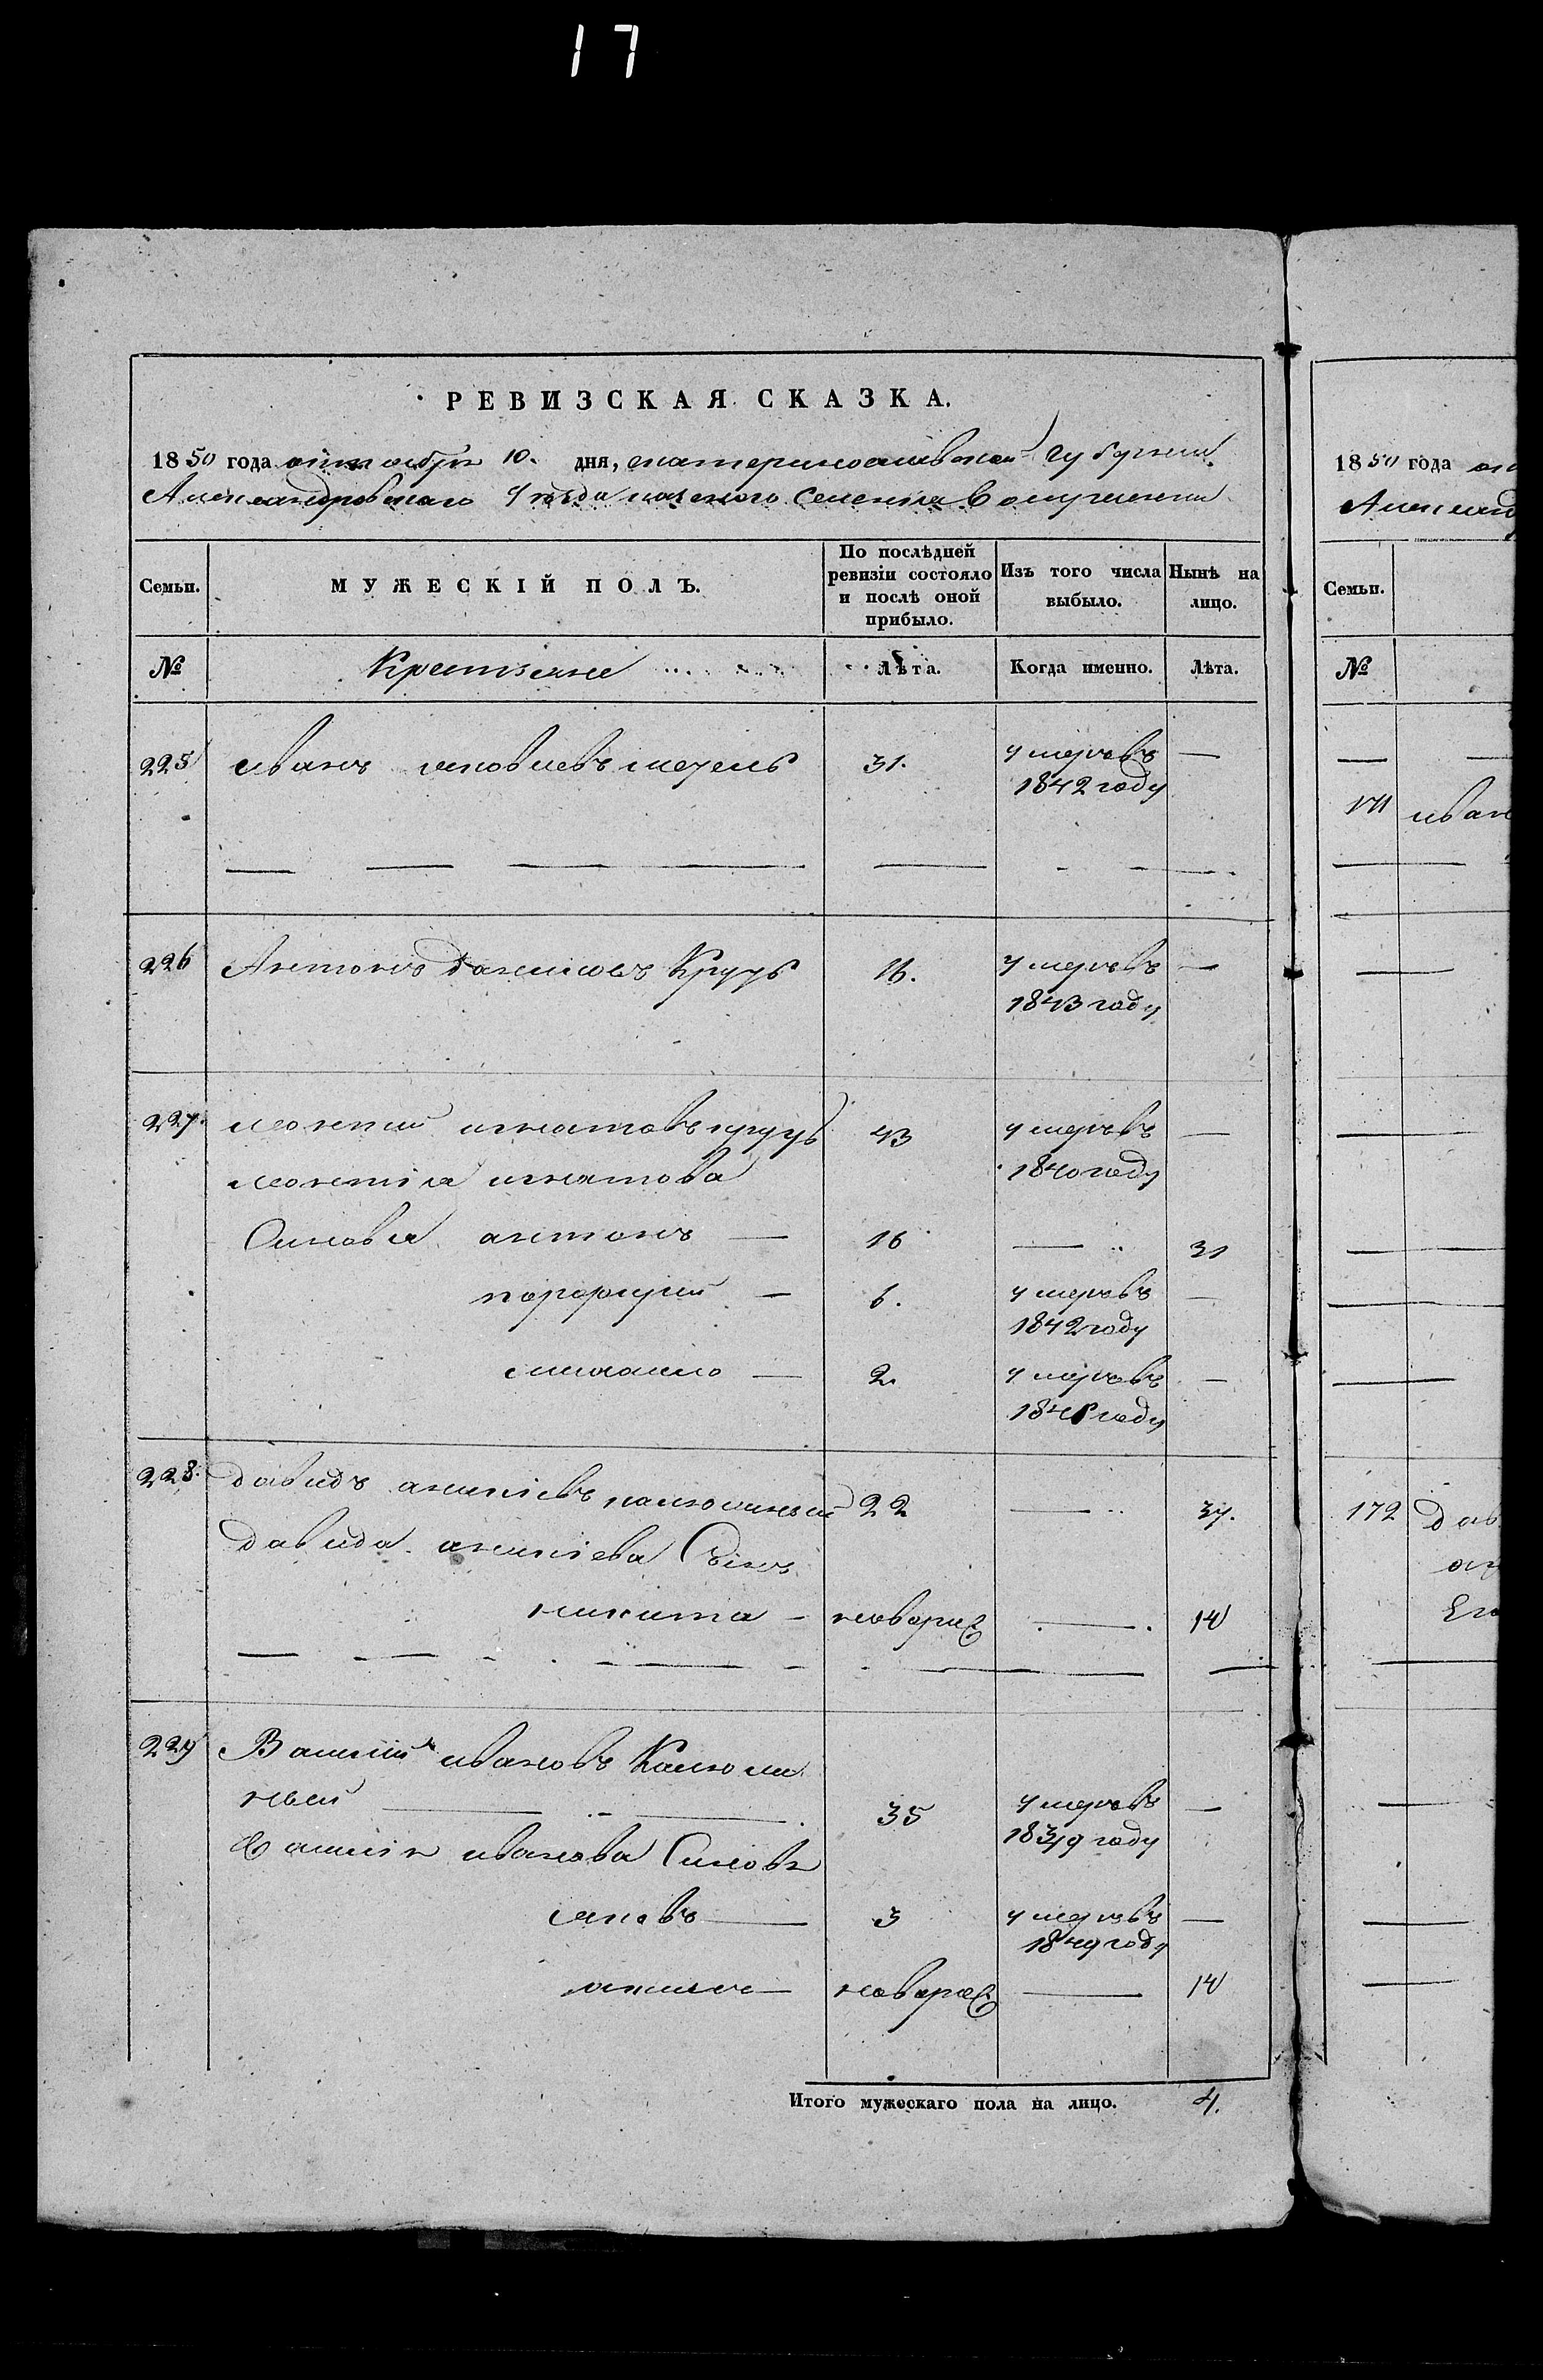 17
РЕВИЗСКАЯ СКАЗКА.
1850 года октября 10. дня, екатеринославской губернии
Александровского уезда казенного селения
Семьи. МУЖЕСКІЙ ПОЛЪ. По послѣдней ревизіи состояло и послѣ оной прибыло. Изъ того числа выбыло. Нынѣ на лицо.
№ Крестьяне Лѣта. Когда именно. Лѣта.
225 иванъ яковлевъ 31. умеръ въ —
1842 году
226 Антонъ даниловъ Круць 16. умеръ въ —
1843 году
227. игнатовъ круць 43 умеръ въ —
1840 году
игнатова
Сыновья антонъ — 16 — 31
порфирій — 6. умеръ въ —
1842 году
михаило — 2. умеръ въ —
году
228. давидъ 22 — 37.
давида Сынъ
никита — новорж — 14
229 Василій ивановъ Калюж
ный — 35 умеръ въ —
1839 году
Василія иванова Сыновя
яковъ — 3 умеръ въ —
1849 году
— новорж — 14
Итого мужескаго пола на лицо. 4.
1850 года
Александ
Семьи.
№
171 иван
172 дав
Его